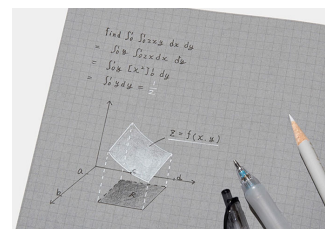 Find ∫₀¹ ∫₀¹ 2xy dx dy
= ∫₀¹ y ∫₀¹ 2x dx dy
= ∫₀¹ y [x²]₀¹ dy
= ∫₀¹ y dy = 1/2
z = f(x, y)
a
c
d
b
R